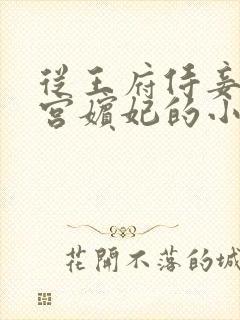 從王府侍妾
宮嬪妃的小
花開不落的城